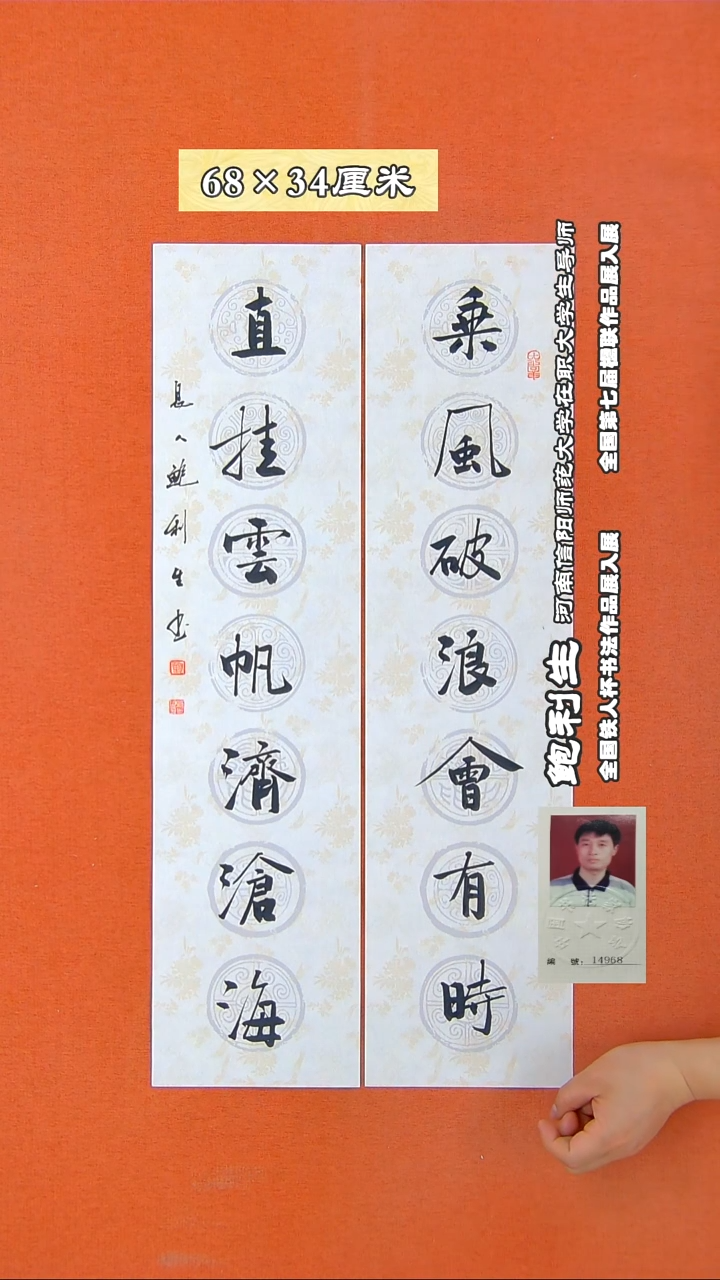 68×34厘米
乘風破浪會有時
直挂雲帆濟滄海
長人鮑利生书
鲍利生
河南信阳师范大学在职大学生导师
全国第七届楹联作品展入展
全国铁人杯书法作品展入展
編 號：14968